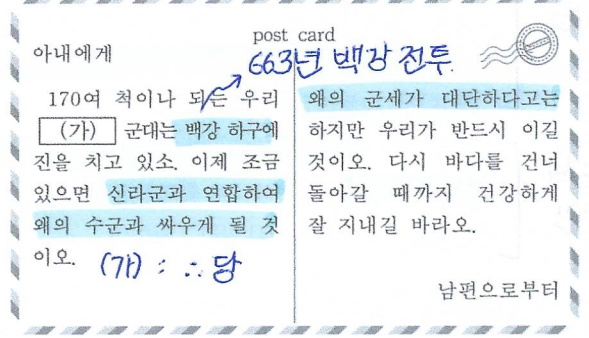 post card
663년 백강 전투
아내에게
170여 척이나 되는 우리
(가) 군대는 백강 하구에
진을 치고 있소. 이제 조금
있으면 신라군과 연합하여
왜의 수군과 싸우게 될 것
이오.
(가) : ∴ 당
왜의 군세가 대단하다고는
하지만 우리가 반드시 이길
것이오. 다시 바다를 건너
돌아갈 때까지 건강하게
잘 지내길 바라오.
남편으로부터